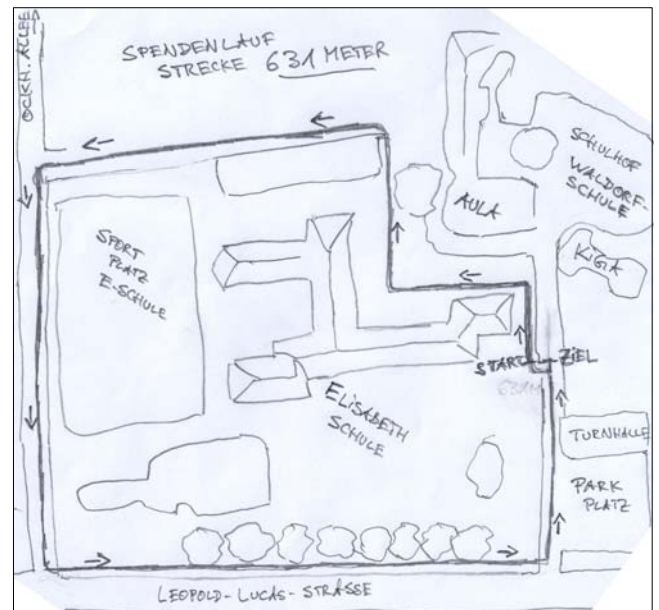 OCKH. ALLEE
SPENDENLAUF
STRECKE 631 METER
SCHULHOF
WALDORF-
SCHULE
AULA
KIGA
SPORT
PLATZ
E-SCHULE
START--ZIEL
631M
ELISABETH
SCHULE
TURNHALLE
PARK
PLATZ
LEOPOLD-LUCAS-STRASSE